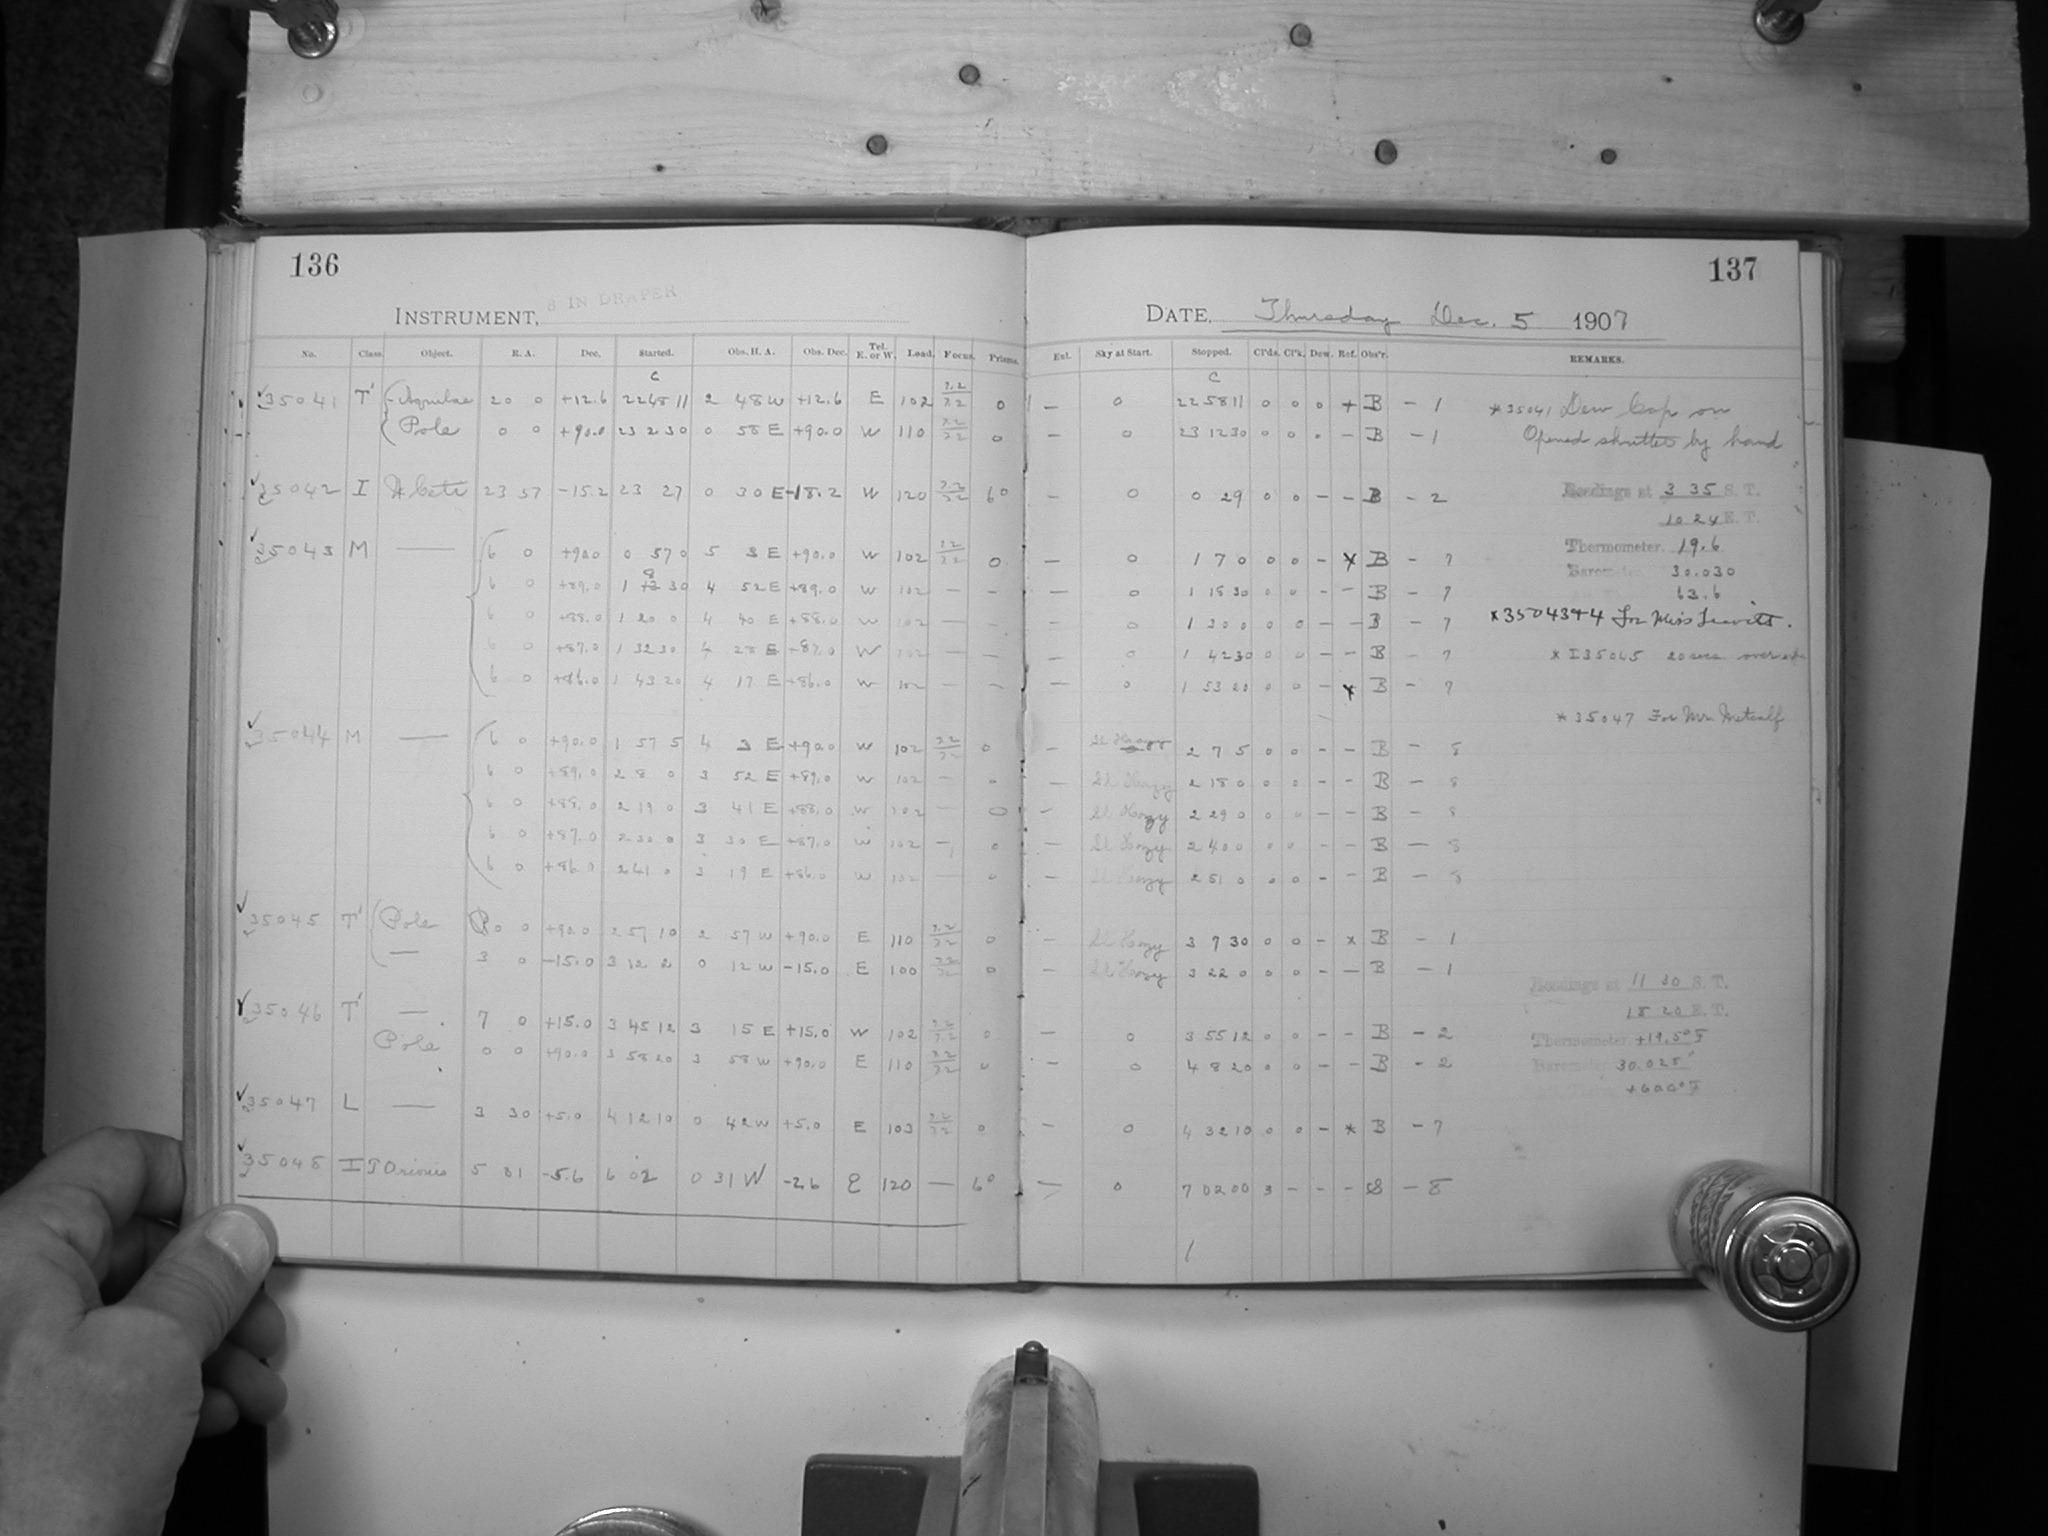 136
137
INSTRUMENT, 8 IN DRAPER
DATE, Thursday Dec. 5 1907
No. Class. Object. R. A. Dec. Started. Obs. H. A. Obs. Dec. Tel. E. or W. Load. Focus. Prisms. Ext. Sky at Start. Stopped. Cl'ds. Cl'k. Dew. Ref. Obs'r. REMARKS.
C C
35041 T' Aquilae 20 0 +12.6 22 48 11 2 48 W +12.6 E 102 0 — 0 22 58 11 0 0 0 + B - 1 *35041 Dew Cap on
Pole 0 0 +90.0 23 2 30 0 58 E +90.0 W 110 0 — 0 23 12 30 0 0 0 - B - 1 Opened shutter by hand
35042 I Ceti 23 57 -15.2 23 27 0 30 E -18.2 W 120 6° — 0 0 29 0 0 - - B - 2 Readings at 3 35 S. T.
10 24 E. T.
35043 M — 6 0 +90.0 0 57 0 5 3 E +90.0 W 102 0 — 0 1 7 0 0 0 - x B - 7 Thermometer. 19.6
6 0 +89.0 1 30 4 52 E +89.0 W 102 — — — 0 1 18 30 0 0 - - B - 7 30.030
63.6
6 0 +88.0 1 20 0 4 40 E +88.0 W 102 — — — 0 1 30 0 0 0 - - B - 7 *35043+4 For Miss Leavitt.
6 0 +87.0 1 32 30 4 28 E +87.0 W 102 — — — 0 1 42 30 0 0 - - B - 7 * I35045 20 secs over
6 0 +86.0 1 43 20 4 17 E +86.0 W 102 — — — 0 1 53 20 0 0 - x B - 7
* 35047 For Mr. Metcalf
35044 M — 6 0 +90.0 1 57 5 4 3 E +90.0 W 102 0 — Sl Hazy 2 7 5 0 0 - - B - 8
6 0 +89.0 2 8 0 3 52 E +89.0 W 102 — 0 — Sl Hazy 2 18 0 0 0 - - B - 8
6 0 +88.0 2 19 0 3 41 E +88.0 W 102 — 0 — Sl Hazy 2 29 0 0 0 - - B - 8
6 0 +87.0 2 30 0 3 30 E +87.0 W 102 — 0 — Sl Hazy 2 40 0 0 0 - - B - 8
6 0 +86.0 2 41 0 3 19 E +86.0 W 102 — 0 — Sl Hazy 2 51 0 0 0 - - B - 8
35045 T' Pole 0 0 +90.0 2 57 10 2 57 W +90.0 E 110 0 — Sl Hazy 3 7 30 0 0 - x B - 1
— 3 0 -15.0 3 12 2 0 12 W -15.0 E 100 0 — Sl Hazy 3 22 0 0 0 - - B - 1
Readings at 11 30 S. T.
35046 T' — 7 0 +15.0 3 45 12 3 15 E +15.0 W 102 0 — 0 3 55 12 0 0 - - B - 2 18 20 E. T.
Thermometer +19.5°F
Pole 0 0 +90.0 3 58 20 3 58 W +90.0 E 110 0 — 0 4 8 20 0 0 - - B - 2 Barometer 30.025"
35047 L — 3 30 +5.0 4 12 10 0 42 W +5.0 E 103 0 — 0 4 32 10 0 0 - * B - 7
35048 I Orionis 5 31 -5.6 6 02 0 31 W -26 E 120 — 6° 0 7 02 00 3 - - - S - 8